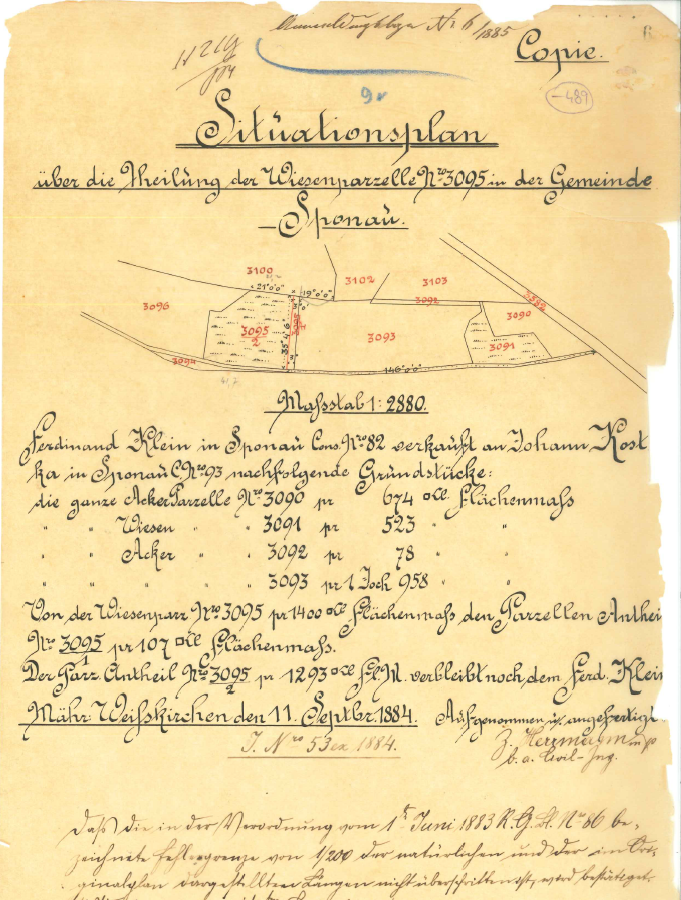 Anmeldungsbogen Nr. 6/1885
6
Copie.
9v
-489
Situationsplan
über die Theilung der Wiesenparzelle Nro 3095 in der Gemeinde
Sponau.
3100
3102
3103
3096
21°0'0"
19°0'0"
3092
3095
2
3093
3090
3091
3094
146°0'0"
Maßstab 1:2880.
Ferdinand Klein in Sponau Cons. Nro 82 verkauft an Johann Kost
ka in Sponau C. Nro 93 nachfolgende Grundstücke:
die ganze Acker Parzelle Nro 3090 pr 674 □Kl. Flächenmaß
" " Wiesen " " 3091 pr 523 " "
" " Acker " " 3092 pr 78 " "
" " " " 3093 pr 1 Joch 958 " "
Von der Wiesenparz Nro 3095 pr 1400 □Kl Flächenmaß den Parzellen Anthei
Nro 3095/1 pr 107 □Kl Flächenmaß.
Der Parz. Antheil Nro 3095/2 pr 1293 □Kl Fl. M. verbleibt noch dem Ferd. Klein
Mähr. Weißkirchen den 11. Septbr. 1884. Aufgenommen u. angefertigt
J. Nro 53 ex 1884.
Herrmann
b. a. Civil-Ing.
Daß die in der Verordnung vom 1t Juni 1883 R. G. Bl. No 86 be-
zeichnete Fehlergrenze von 1/200 der natürlichen und der im Ori-
ginalplan dargestellten Längen nicht überschritten ist, wird bestätiget.